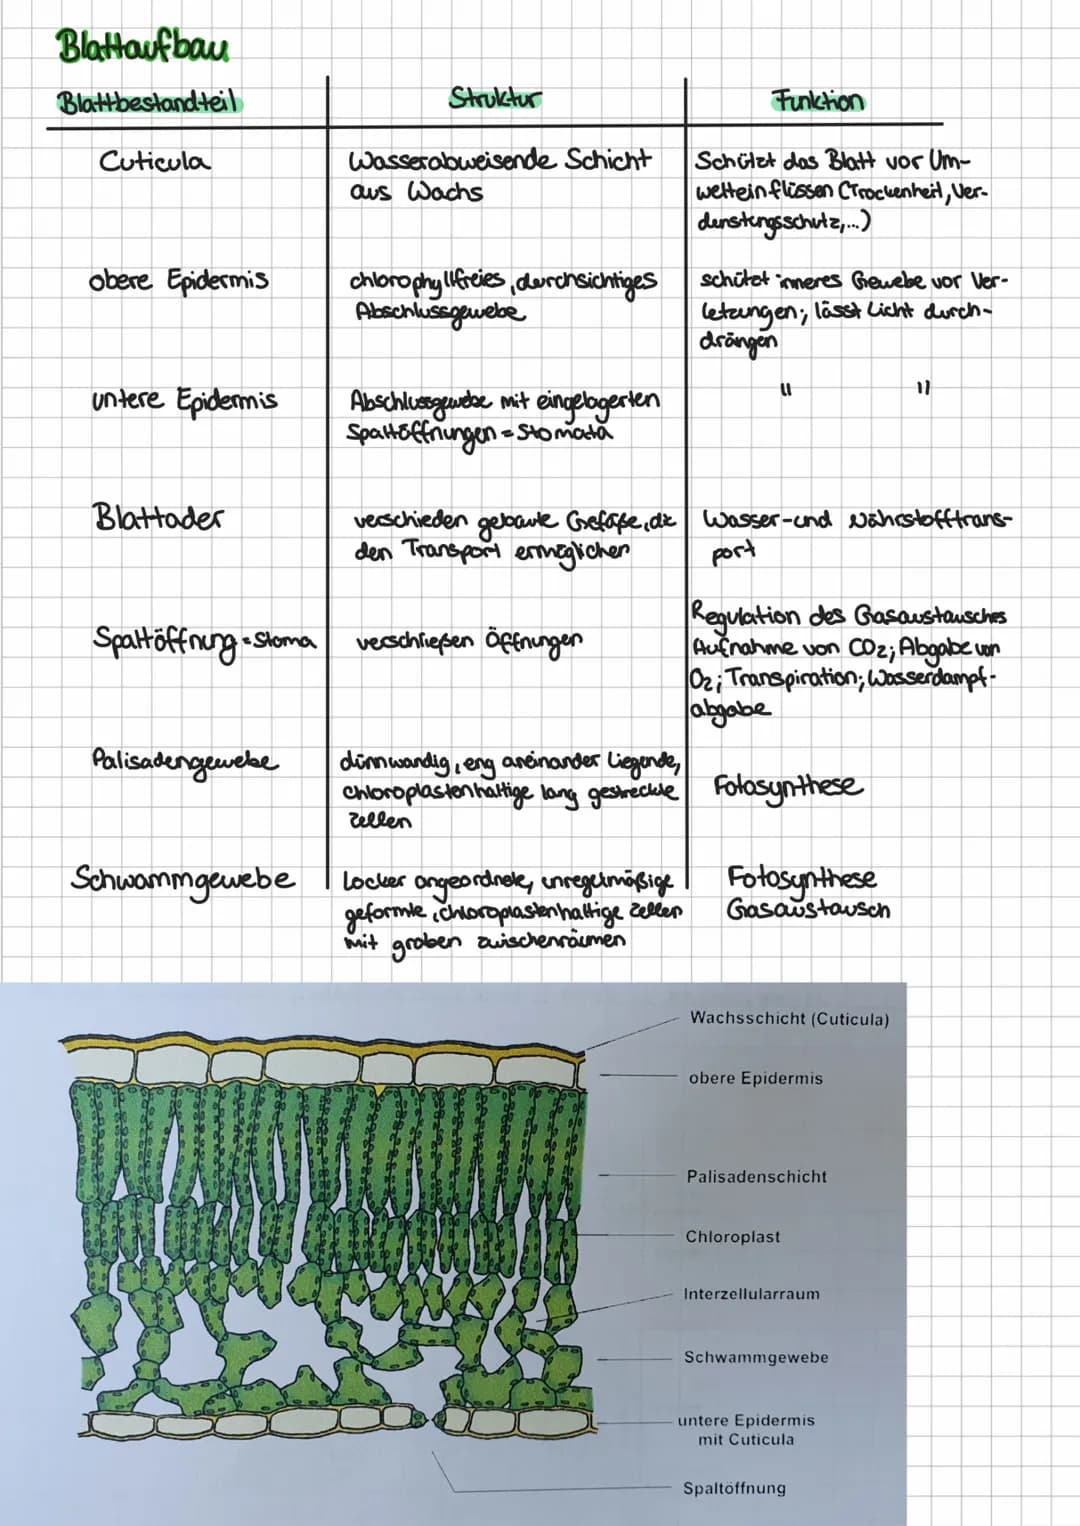 Blattaufbau
Blattbestandteil
Struktur
Funktion
Cuticula
Wasserabweisende Schicht
aus Wachs
Schützt das Blatt vor Um-
welteinflüssen (Trockenheit, Ver-
dunstungsschutz,...)
obere Epidermis
chlorophyllfreies, durchsichtiges
Abschlussgewebe
schützt inneres Gewebe vor Ver-
letzungen; lässt Licht durch-
drängen
untere Epidermis
Abschlussgewebe mit eingelagerten
Spaltöffnungen = Stomata
" "
Blattader
verschieden gebaute Gefäße, die
den Transport ermöglichen
Wasser- und Nährstofftrans-
port
Spaltöffnung = Stoma
verschließen Öffnungen
Regulation des Gasaustausches
Aufnahme von CO2; Abgabe von
O2; Transpiration; Wasserdampf-
abgabe
Palisadengewebe
dünnwandig, eng aneinander liegende,
chloroplastenhaltige lang gestreckte
Zellen
Fotosynthese
Schwammgewebe
Locker angeordnete, unregelmäßige
geformte, chloroplastenhaltige Zellen
mit groben zwischenräumen
Fotosynthese
Gasaustausch
Wachsschicht (Cuticula)
obere Epidermis
Palisadenschicht
Chloroplast
Interzellularraum
Schwammgewebe
untere Epidermis
mit Cuticula
Spaltöffnung